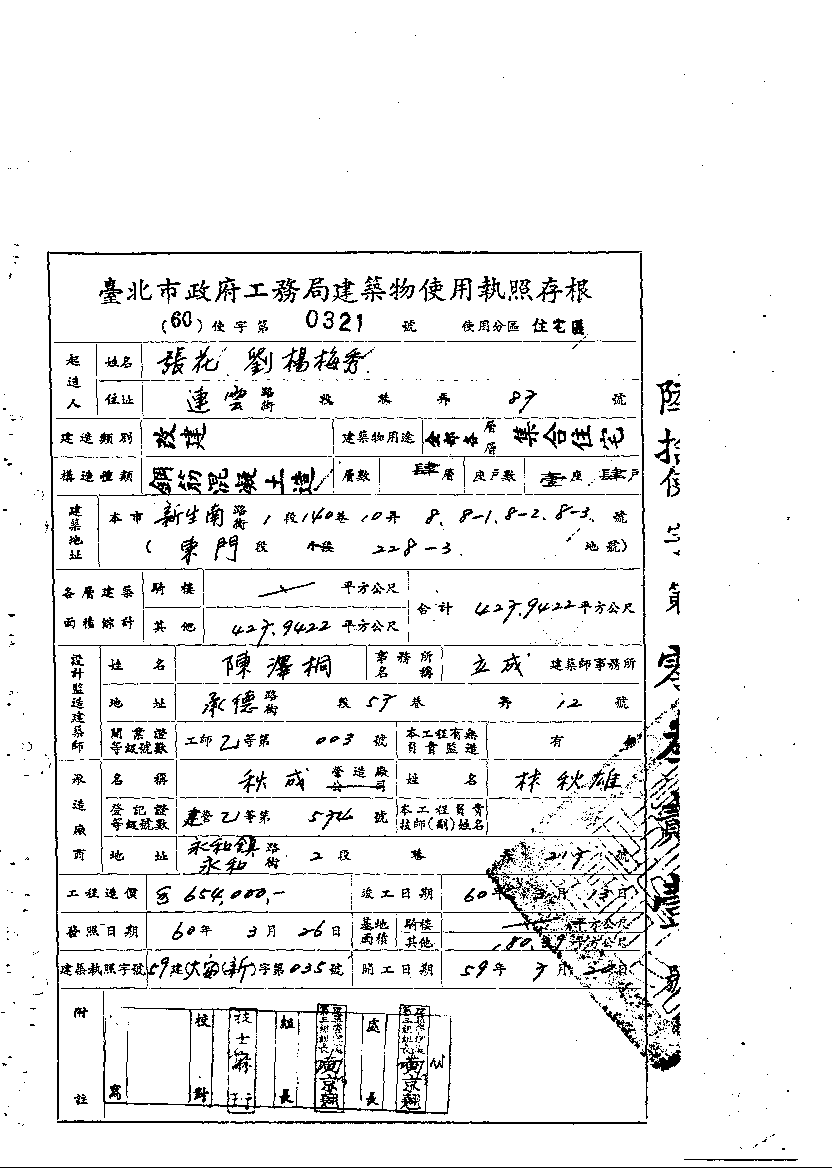 臺北市政府工務局建築物使用執照存根
(60) 使字第 0321 號 使用分區 住宅區
起造人 姓名 張花 劉楊梅秀
住址 連雲 路街 段 巷 弄 87 號
建造類別 改建 建築物用途 全部各層 集合住宅
構造種類 鋼筋混凝土造 層數 肆層 座戶數 壹座 肆戶
建築地址 本市 新生南 路街 1 段 140 巷 10 弄 8. 8-1. 8-2. 8-3. 號
( 東門 段 小段 228-3 地號)
各層建築面積綜計 騎樓 平方公尺 合計 427.9422 平方公尺
其他 427.9422 平方公尺
設計監造建築師 姓名 陳澤桐 事務所名稱 立成 建築師事務所
地址 承德 路街 段 57 巷 弄 12 號
開業證等級號數 工師乙等第 003 號 本工程有無負責監造 有
承造廠商 名稱 秋成 營造廠公司 姓名 林秋雄
登記證等級號數 建營乙等第 號 本工程負責技師(副)姓名
地址 永和鎮永和 路街 2 段 巷 217 號
工程造價 654,000,- 竣工日期 60年 月 13日
發照日期 60年 3月 26日 基地面積 騎樓 平方公尺
其他 平方公尺
建築執照字號 59建(大安)(新)字第035號 開工日期 59年 7月 20日
附註 校對 組長 處長